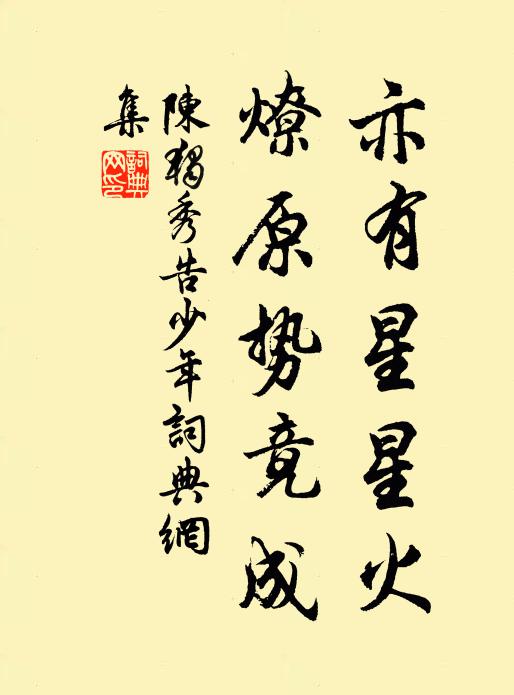 亦有星星火
燎原势竟成
陳独秀告少年詞典網
集
詞典
网印